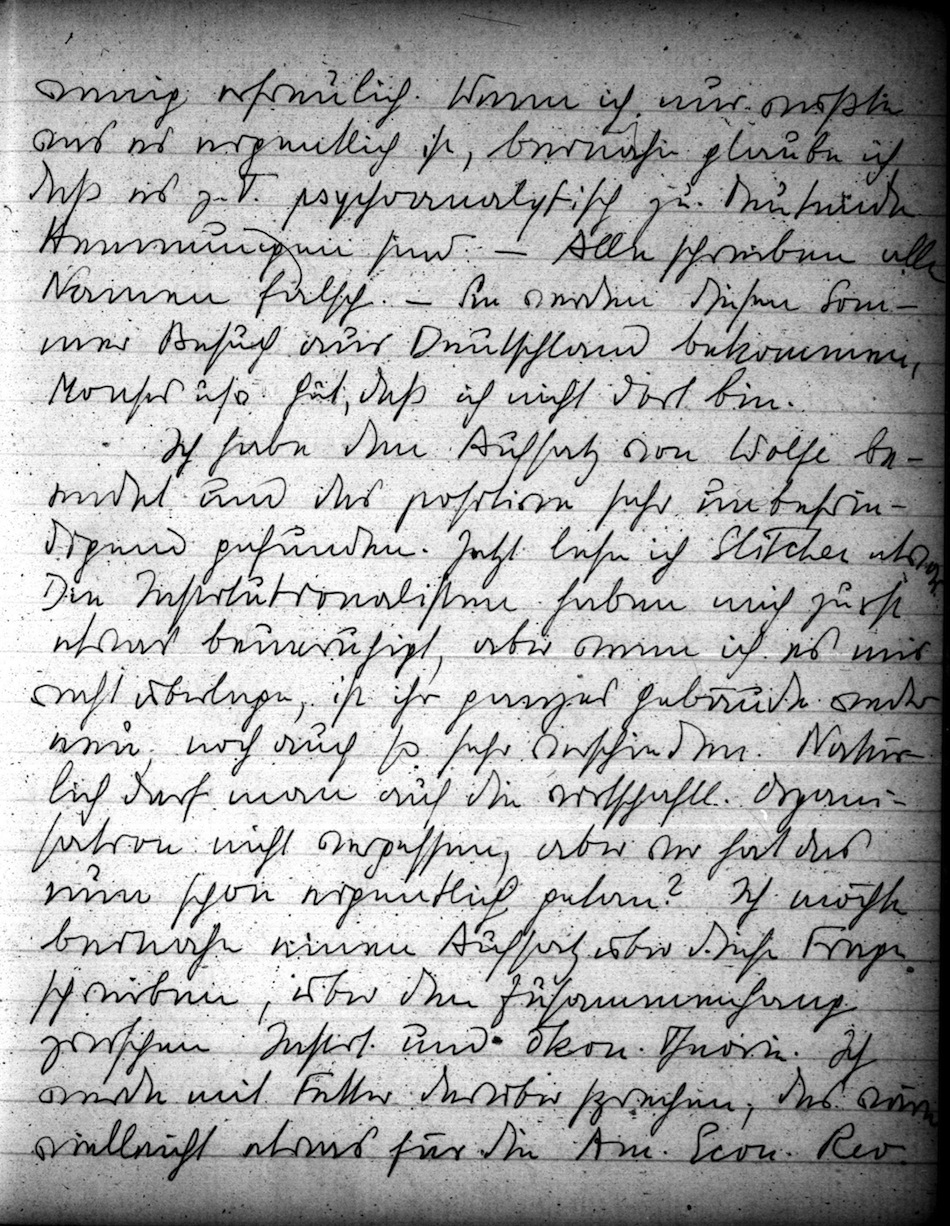 wenig erfreulich. Wenn ich nur wüßte
was es eigentlich ist, beinahe glaube ich
daß es z.T. psychoanalytisch zu deutende
Hemmungen sind. — Alle schreiben alle
Namen falsch. — Sie werden diesen Som-
mer Besuch aus Deutschland bekommen,
usw. Gut, daß ich nicht dort bin.
Ich habe den Aufsatz von Wolfe be-
endet und das positive sehr unbefrie-
digend gefunden. Jetzt lese ich
Die Institutionalisten haben mich zuerst
etwas beunruhigt, aber wenn ich es mir
recht überlege, ist ihr ganzes Gebäude weder
neu, noch auch so sehr verschieden. Natür-
lich darf man auf die wirtschaftl. Organi-
sation nicht vergessen, aber wer hat das
nun schon eigentlich getan? Ich möchte
beinahe einen Aufsatz über diese Frage
schreiben, über den Zusammenhang
zwischen Instit. und ökon. Theorie. Ich
werde mit Fetter darüber sprechen, das wäre
vielleicht etwas für die Am. Econ. Rev.